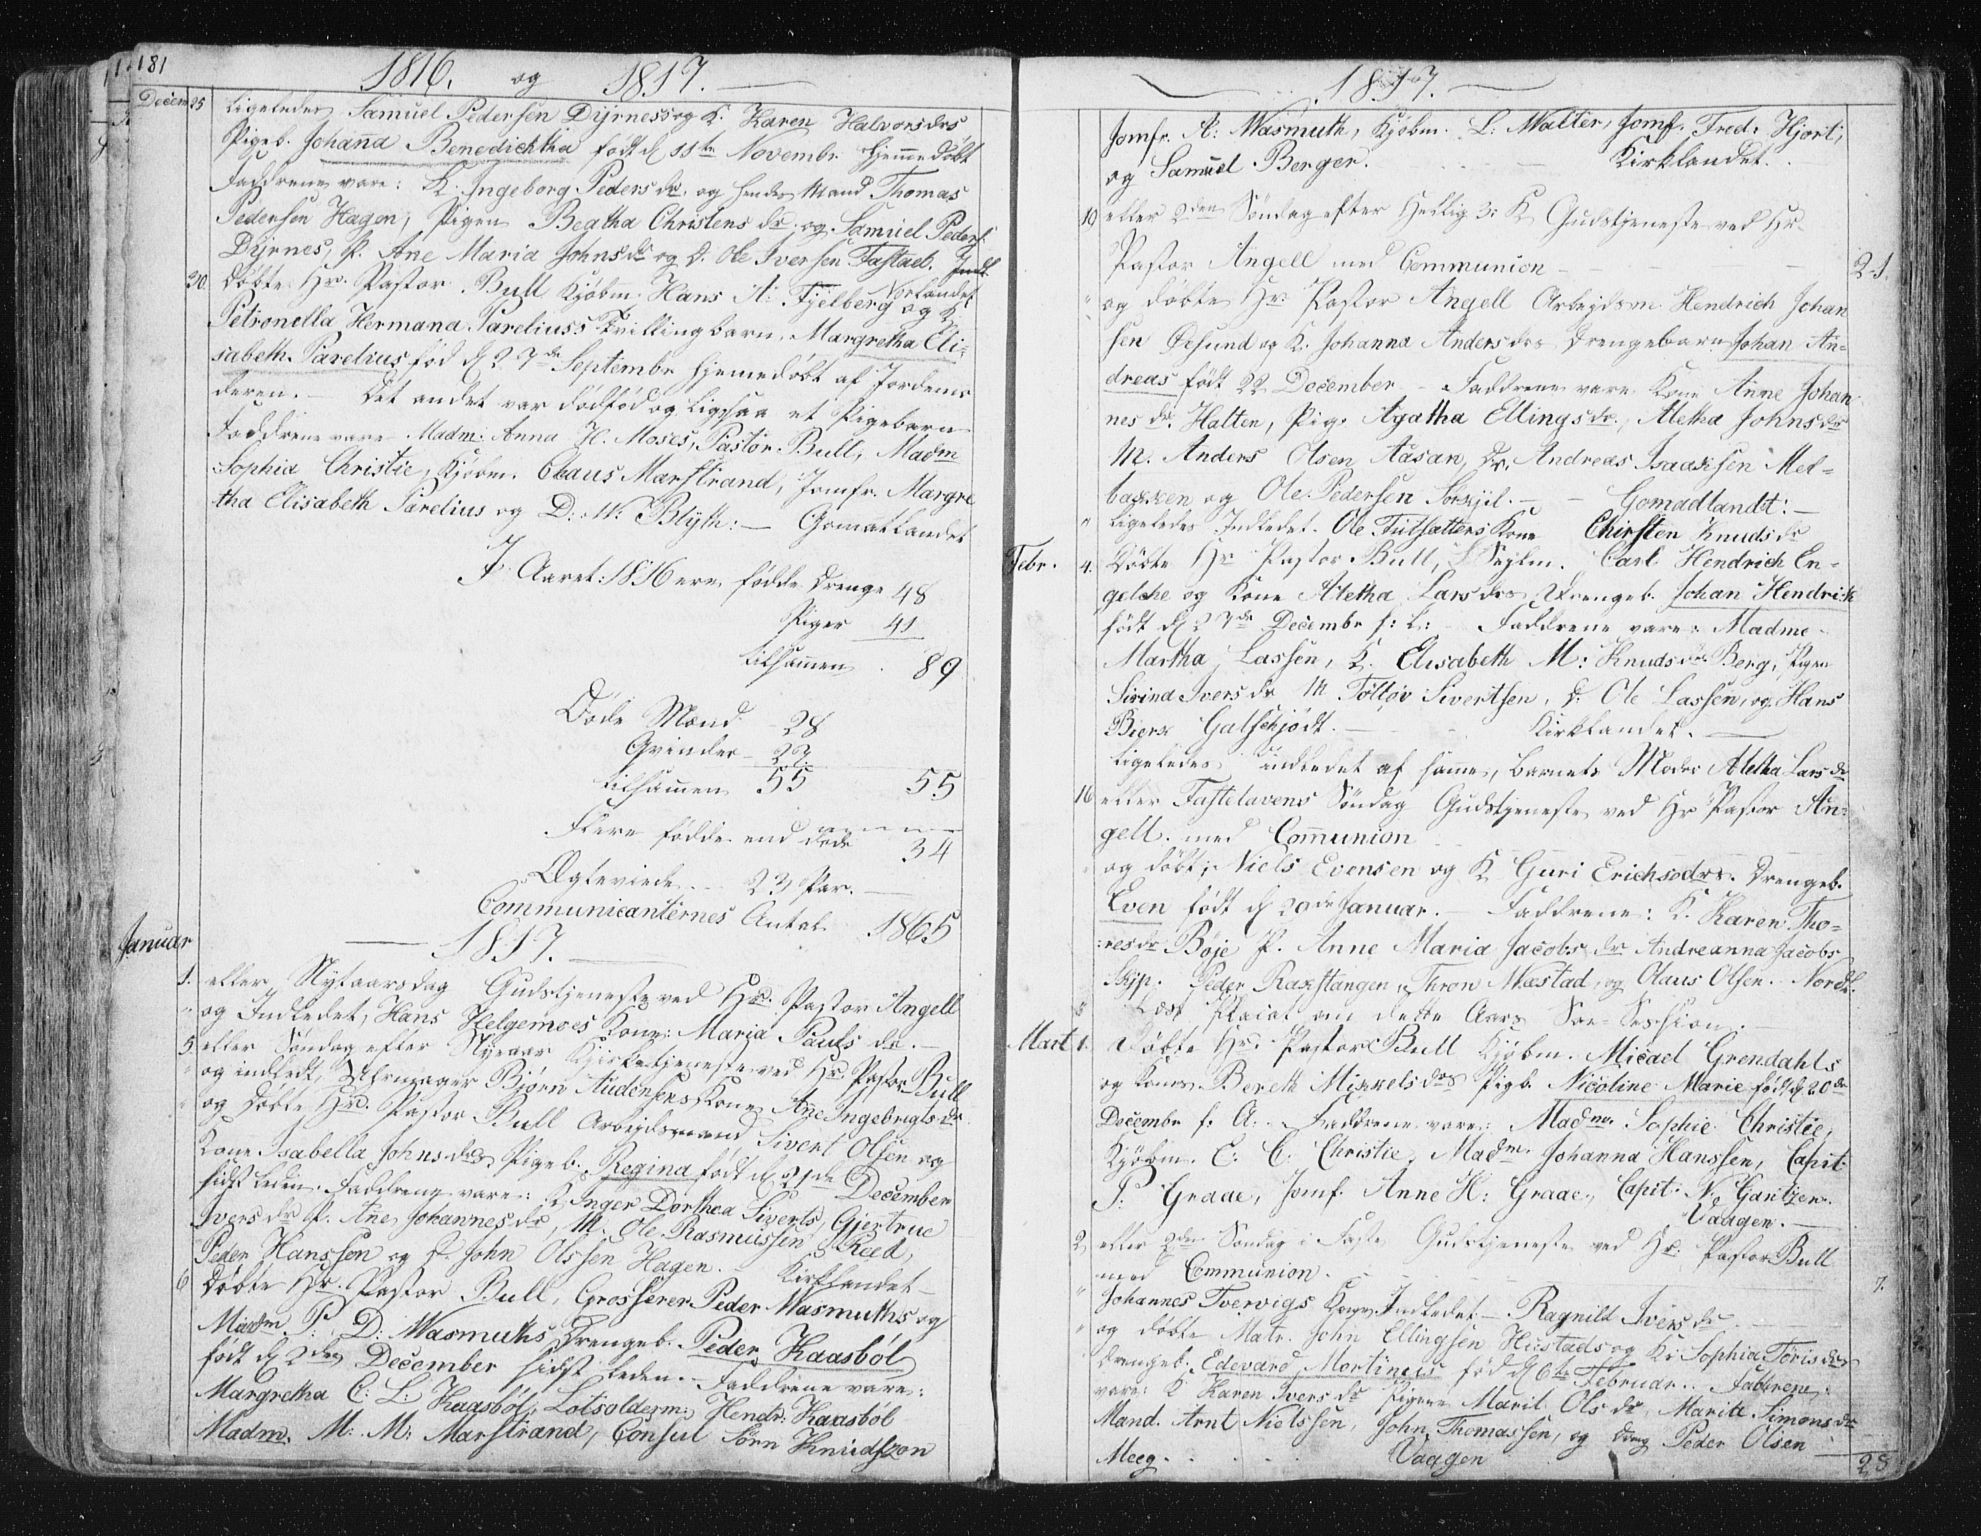 181
1816. og 1817.
Decem 25 Ligeledes Samuel Pedersen Dyrnes og K. Karen Halvorsdrs
Pigeb. Johanna Benedichtha født d 11te Novembr Hjemmedøbt
Faddrene vare: K. Ingeborg Pedersdr. og hendes Mand Thomas
Pedersen Hagen, Pigen Begtha Christensdr. og Samuel Peders.
Dyrnes, P. Ane Maria Johnsdr og D. Ole Iversen Fastad. Indl.
Norlandet.
30. Døbte Hr. Pastor Bull Kjøbm. Hans A. Fjelberg og K
Petronella Hermana Pareliuss Tvillingbarn. Margretha Eli-
sabeth Parelius fød d 27de Septembr hjemmedøbt af Jordemo
deren. - Det andet var dødfød og ligesaa et Pigebarn
Faddrene vare Madm: Anna H. Moses, Pastor Bull, Madm
Sophia Christie, Kjøbm. Claus Marstrand, Jomfr. Margre
tha Elisabeth Parelius og D. W. Blyth: - Gomatlandet
I Aaret: 1816 ere fødde Drenge 48
Piger 41
tilsammen . 89
Døde Mænd 28
Qvinder 27.
tilsammen 55 55
Flere fødde end døde 34
Ægteviede - - 23 Par.
Communicanternes Antal 1865
Januar 1817.
1. eller Nytaarsdag Gudstjeneste ved Hr. Pastor Angell
" og Indledet, Hans Helgemoes Kone: Maria Paulsdr. -
5. eller Søndag efter Nyeaar Kirketjeneste ved Hr. Pastor Bull
" og indledt, Uhrmager Bjørn Audensens Kone Ane Ingebrigtsdr
" og døbte Hr. Pastor Bull Arbeidsmand Sivert Olsen og
Kone Isabella Johnsdrs Pigeb. Regina født d 21de December
sidst leden. Faddrene vare: K Inger Dorthea Siverts, Gjertrue
Iversdr P. Ane Johannesdr, M. Ole Rasmussen Reed,
Peder Hanssen og D. John Olssen Hagen. Kirklandet -
6 Døbte Hr. Pastor Bull, Grosserer Peder Wasmuths og
Madm P: D: Wasmuths Drengeb. Peder Kaasbøl
født d 2den December sidst leden. - Faddrene vare:
Margretha C: L: Kaasbøl, Lotsolderm: Hendr. Kaasbøl
Madm. M: M: Marstrand, Consul Sørn Knudtzon
1817.
Jomfr. A: Wasmuth, Kjøbm. L: Walter, Jomf. Fred: Hjort,
og Samuel Berger. Kirklandet.
19 eller 2den Søndag efter Hellig 3: K Gudstjeneste ved Hr.
Pastor Angell med Communion 21.
" og døbte Hr. Pastor Angell Arbejdsm. Hendrich Johan
sen Øesund og K. Johanna Andersdrs Drengebarn Johan An-
dreas født 22 December - Faddrene vare Kone Anne Johan
nesdr. Halten, Pig. Agatha Ellingsdr., Aletha Johnsdr
M. Anders Olsen Aasan, Dr. Andreas Isaaksen Met-
bakken og Ole Pedersen Sorkjil. - - Gomadlandet: -
" Ligeledes Indledet. Ole Tutsatters Kone Chirsten Knudsdr
Febr. 4. Døbte Hr Pastor Bull, Sejlm. Carl Hendrich En-
gelche og Kone Aletha Larsdrs Drengeb. Johan Hendrik
født d 27de Decembr f: A: Faddrene vare: Madme
Martha Lassen, K. Elisabeth M: Knudsdtr Berg, Pigen
Sirina Iversdr M. Tolløv Sivertsen, D. Ole Lassen, og Hans
Bierx Galschjødt. - Kirklandet. -
Ligeledes indledet af samme, Barnets Moder Aletha Larsdr
16 eller Fastelavens Søndag Gudstjeneste ved Hr Pastor An-
gell. med Communion
og døbt; Niels Evensen og K Guri Erichsdrs. Drengeb.
Even født d 29de Januar. - Faddrene: K. Karen Tho-
resdr Bøje P. Anne Maria Jacobsdr Andreanna Jacobs
Peder Raxstangen, Thron Næstad, og Olaus Olsen. Nordl.
" Læst Placat om dette Aars Soe-Session.
Mart 1. Døbte Hr. Pastor Bull Kjøbm. Micael Grendahls
og Kones Bereth Mikkelsdrs Pigb. Nicoline Marie født d 20de
Decembr f. A. Faddrene vare: Madme. Sophie Christie,
Kjøbm. C: C: Christie, Madm. Johanna Hanssen, Capit
P. Graae, Jomf. Anne K: Graae, Capit. N. Gantzer.
Vaagen. -
2 eller 2den Søndag i Faste Gudstjeneste ved Hr. Pastor Bull
med Communion. 7.
" Johannes Tvervigs Kone Indledet - Ragnild Iversdr
" og døbte Matr. John Ellingsen Hustads og K: Sophia Torisdrs
Drengeb. Edevard Mortineus fød d 6te Februar. Faddrene
vare: K Karen Iversdr Pigen Marit Olsdr, Marita Simonsdr
Mand. Arnt Nielssen, John Thomassen, og Dreng Peder Olsen
Meeg. Vaagen 28